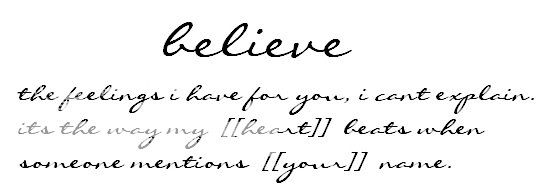 believe
the feelings i have for you, i cant explain.
its the way my [[heart]] beats when
someone mentions [[your]] name.